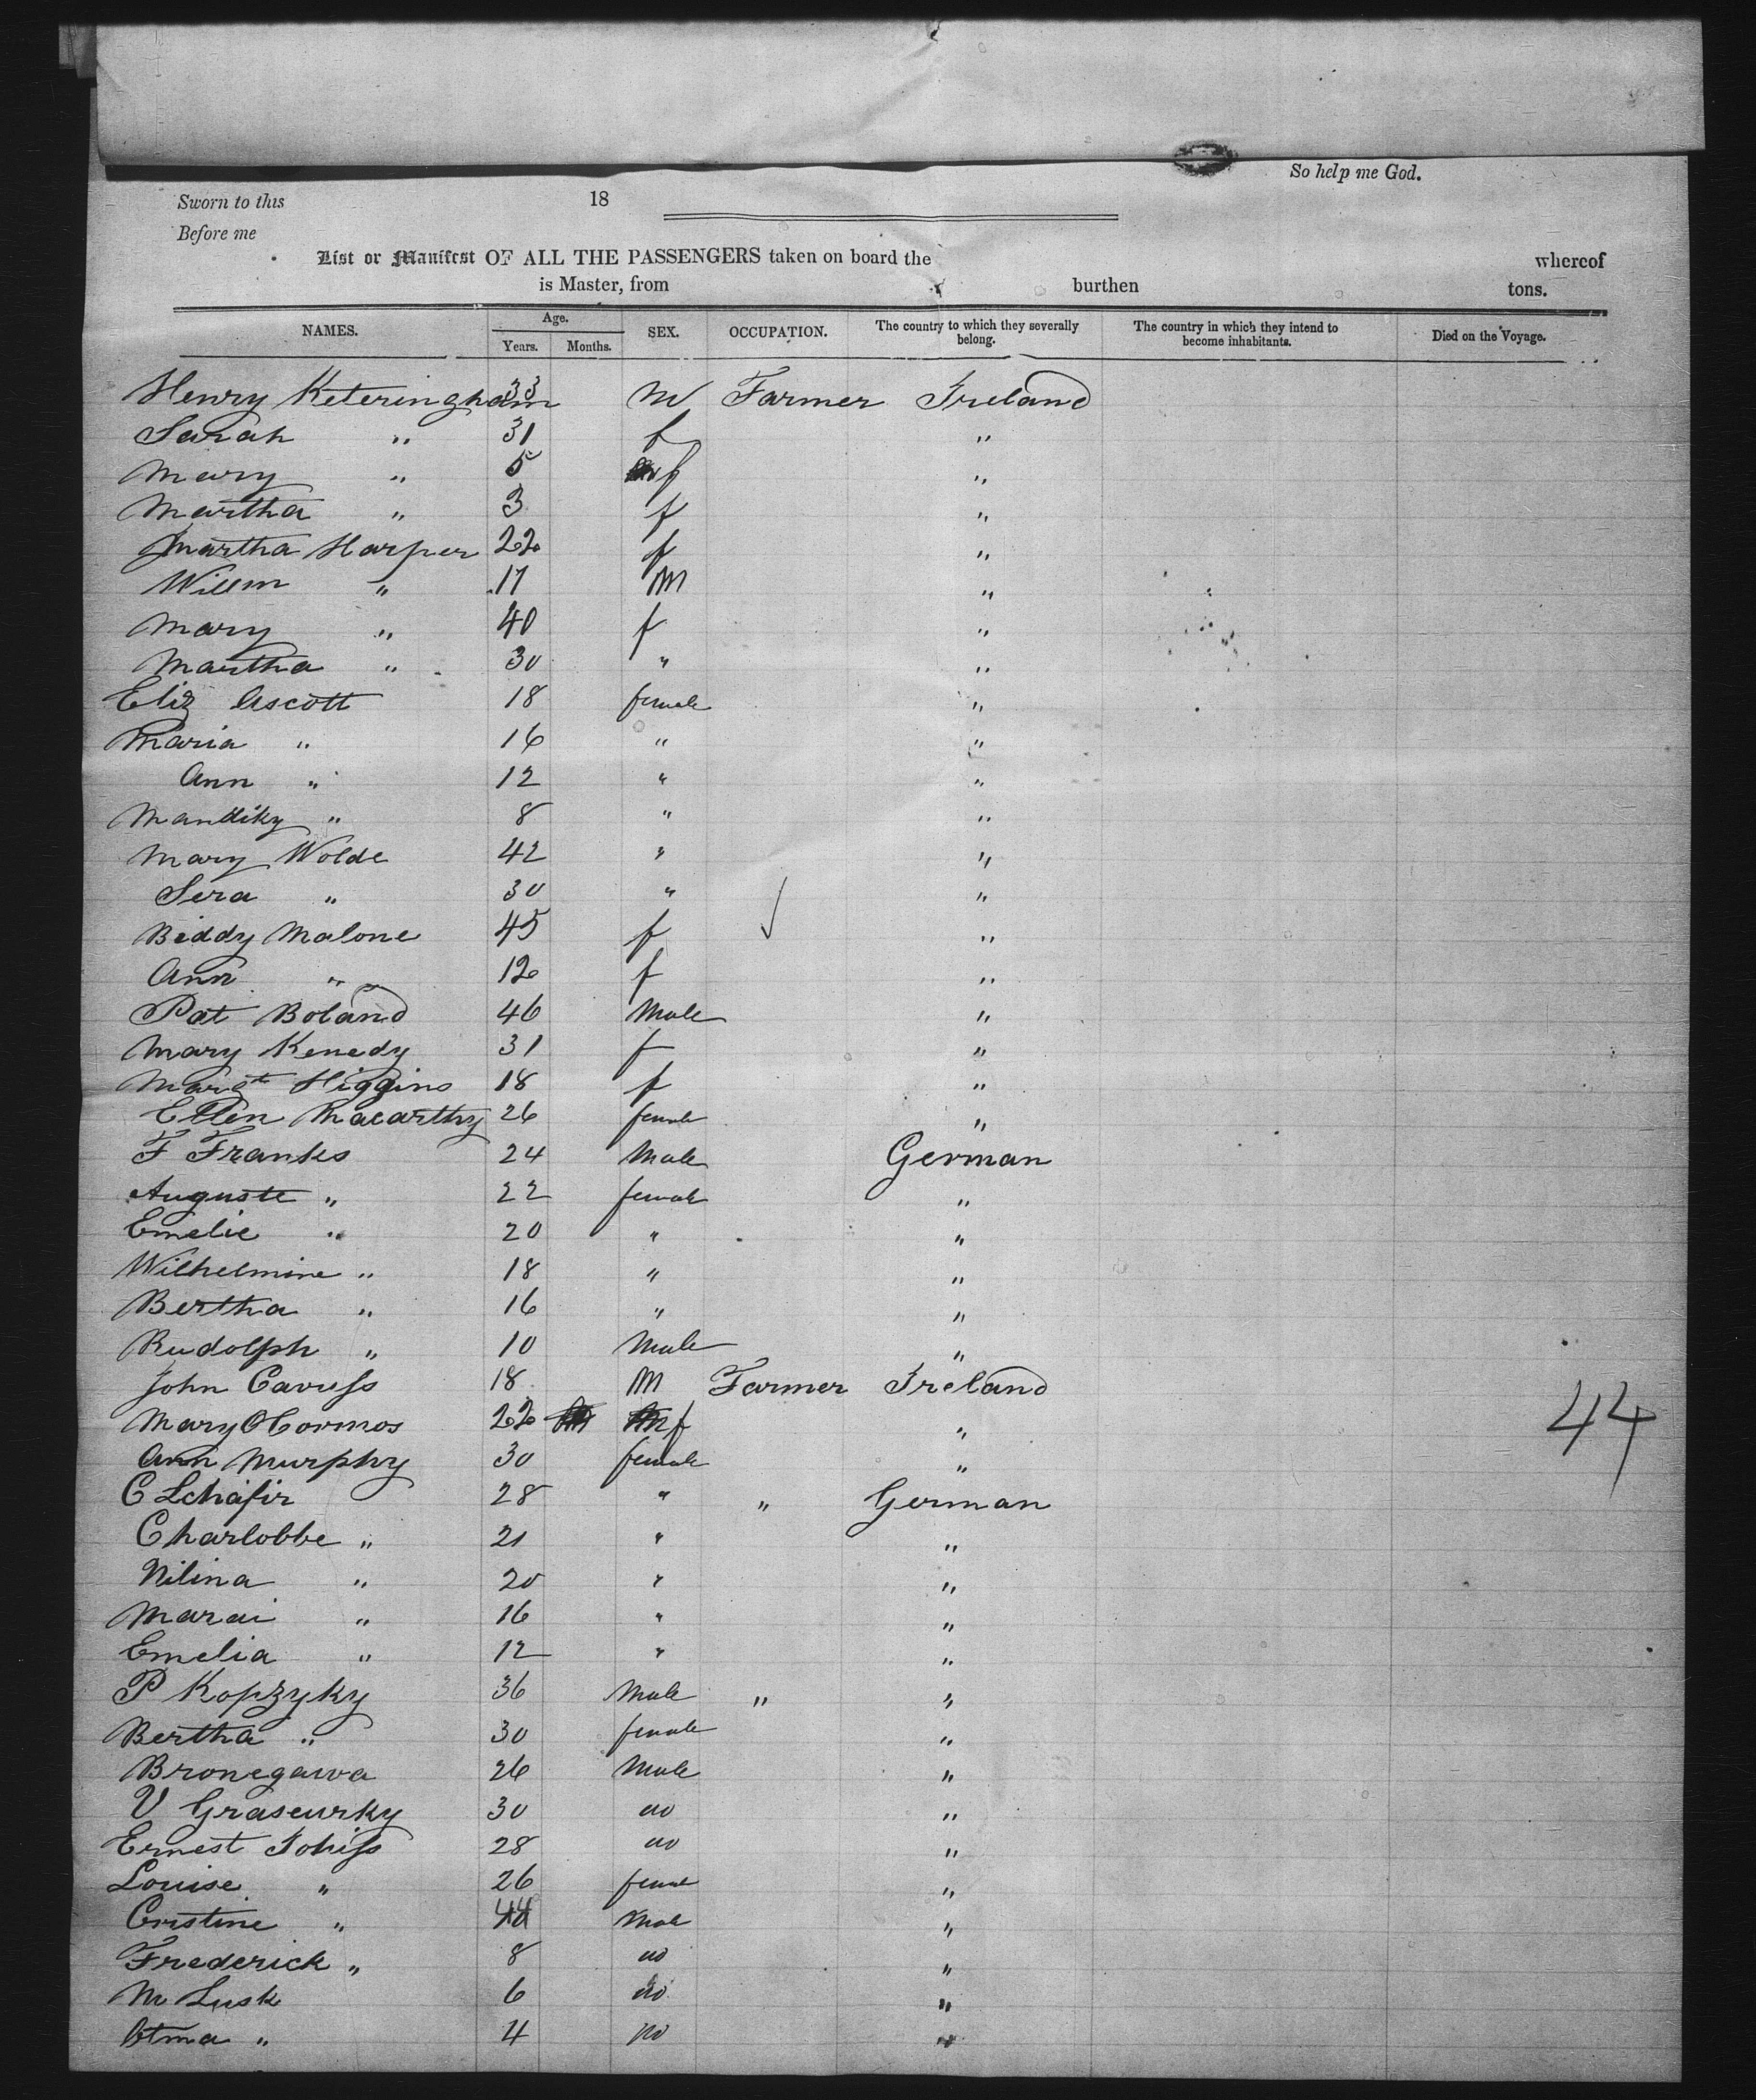 So help me God.
Sworn to this 18
Before me
List or Manifest OF ALL THE PASSENGERS taken on board the whereof
is Master, from burthen tons.
NAMES. Age. Years. Months. SEX. OCCUPATION. The country to which they severally belong. The country in which they intend to become inhabitants. Died on the Voyage.
Henry Keteringham 33 M Farmer Ireland
Sarah " 31 f "
Mary " 5 f "
Martha " 3 f "
Martha Harper 22 f "
Willm " 17 M "
Mary " 40 f "
Martha " 30 " "
Eliz Ascott 18 female "
Maria " 16 " "
Ann " 12 " "
Mandiky " 8 " "
Mary Wolde 42 " "
Sera " 30 " "
Biddy Malone 45 f "
Ann " 12 f "
Pat Boland 46 Male "
Mary Kenedy 31 f "
Margt Higgins 18 f "
Ellen Macarthy 26 female "
F Franks 24 Male German
Auguste " 22 female "
Emelie " 20 " "
Wilhelmine " 18 " "
Bertha " 16 " "
Rudolph " 10 Male "
John Caruss 18 M Farmer Ireland
Mary OCormos 22 f "
44
Ann Murphy 30 female "
C Schafir 28 " " German
Charlobbe " 21 " "
Nilina " 20 " "
Marai " 16 " "
Emelia " 12 " "
P Kopzyky 36 Male " "
Bertha " 30 female "
Bronegawa 26 Male "
V Graseurky 30 do "
Ernest 28 do "
Louise " 26 female "
Cristine " Male "
Frederick " 8 do "
M Lusk 6 do "
" 4 do "